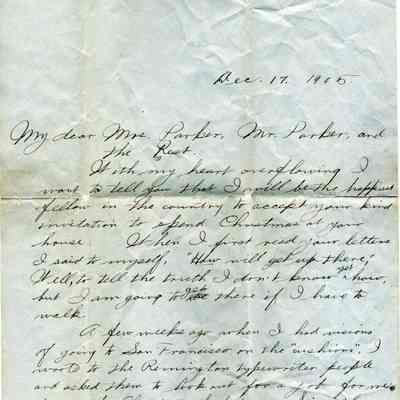 Dec. 17. 1905
My dear Mrs. Parker, Mr. Parker, and
the Rest
With my heart overflowing I
want to tell you that I will be the happiest
fellow in the country to accept your kind
invitation to spend Christmas at your
house. When I first read your letters
I said to myself, "How will I get up there,"
Well, to tell the truth I don't know yet how,
but I am going to get there if I have to
walk.
A few weeks ago when I had visions
of going to San Francisco on the "cushions", I
wrote to the Remington typewriter people
and asked them to look out for a job for me